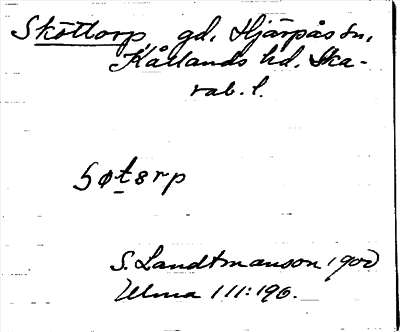 Sköttorp gd, Hjärpås sn,
Kållands hd. Ska-
rab. l.
S. Landtmanson 1900
Ulma 111:196.